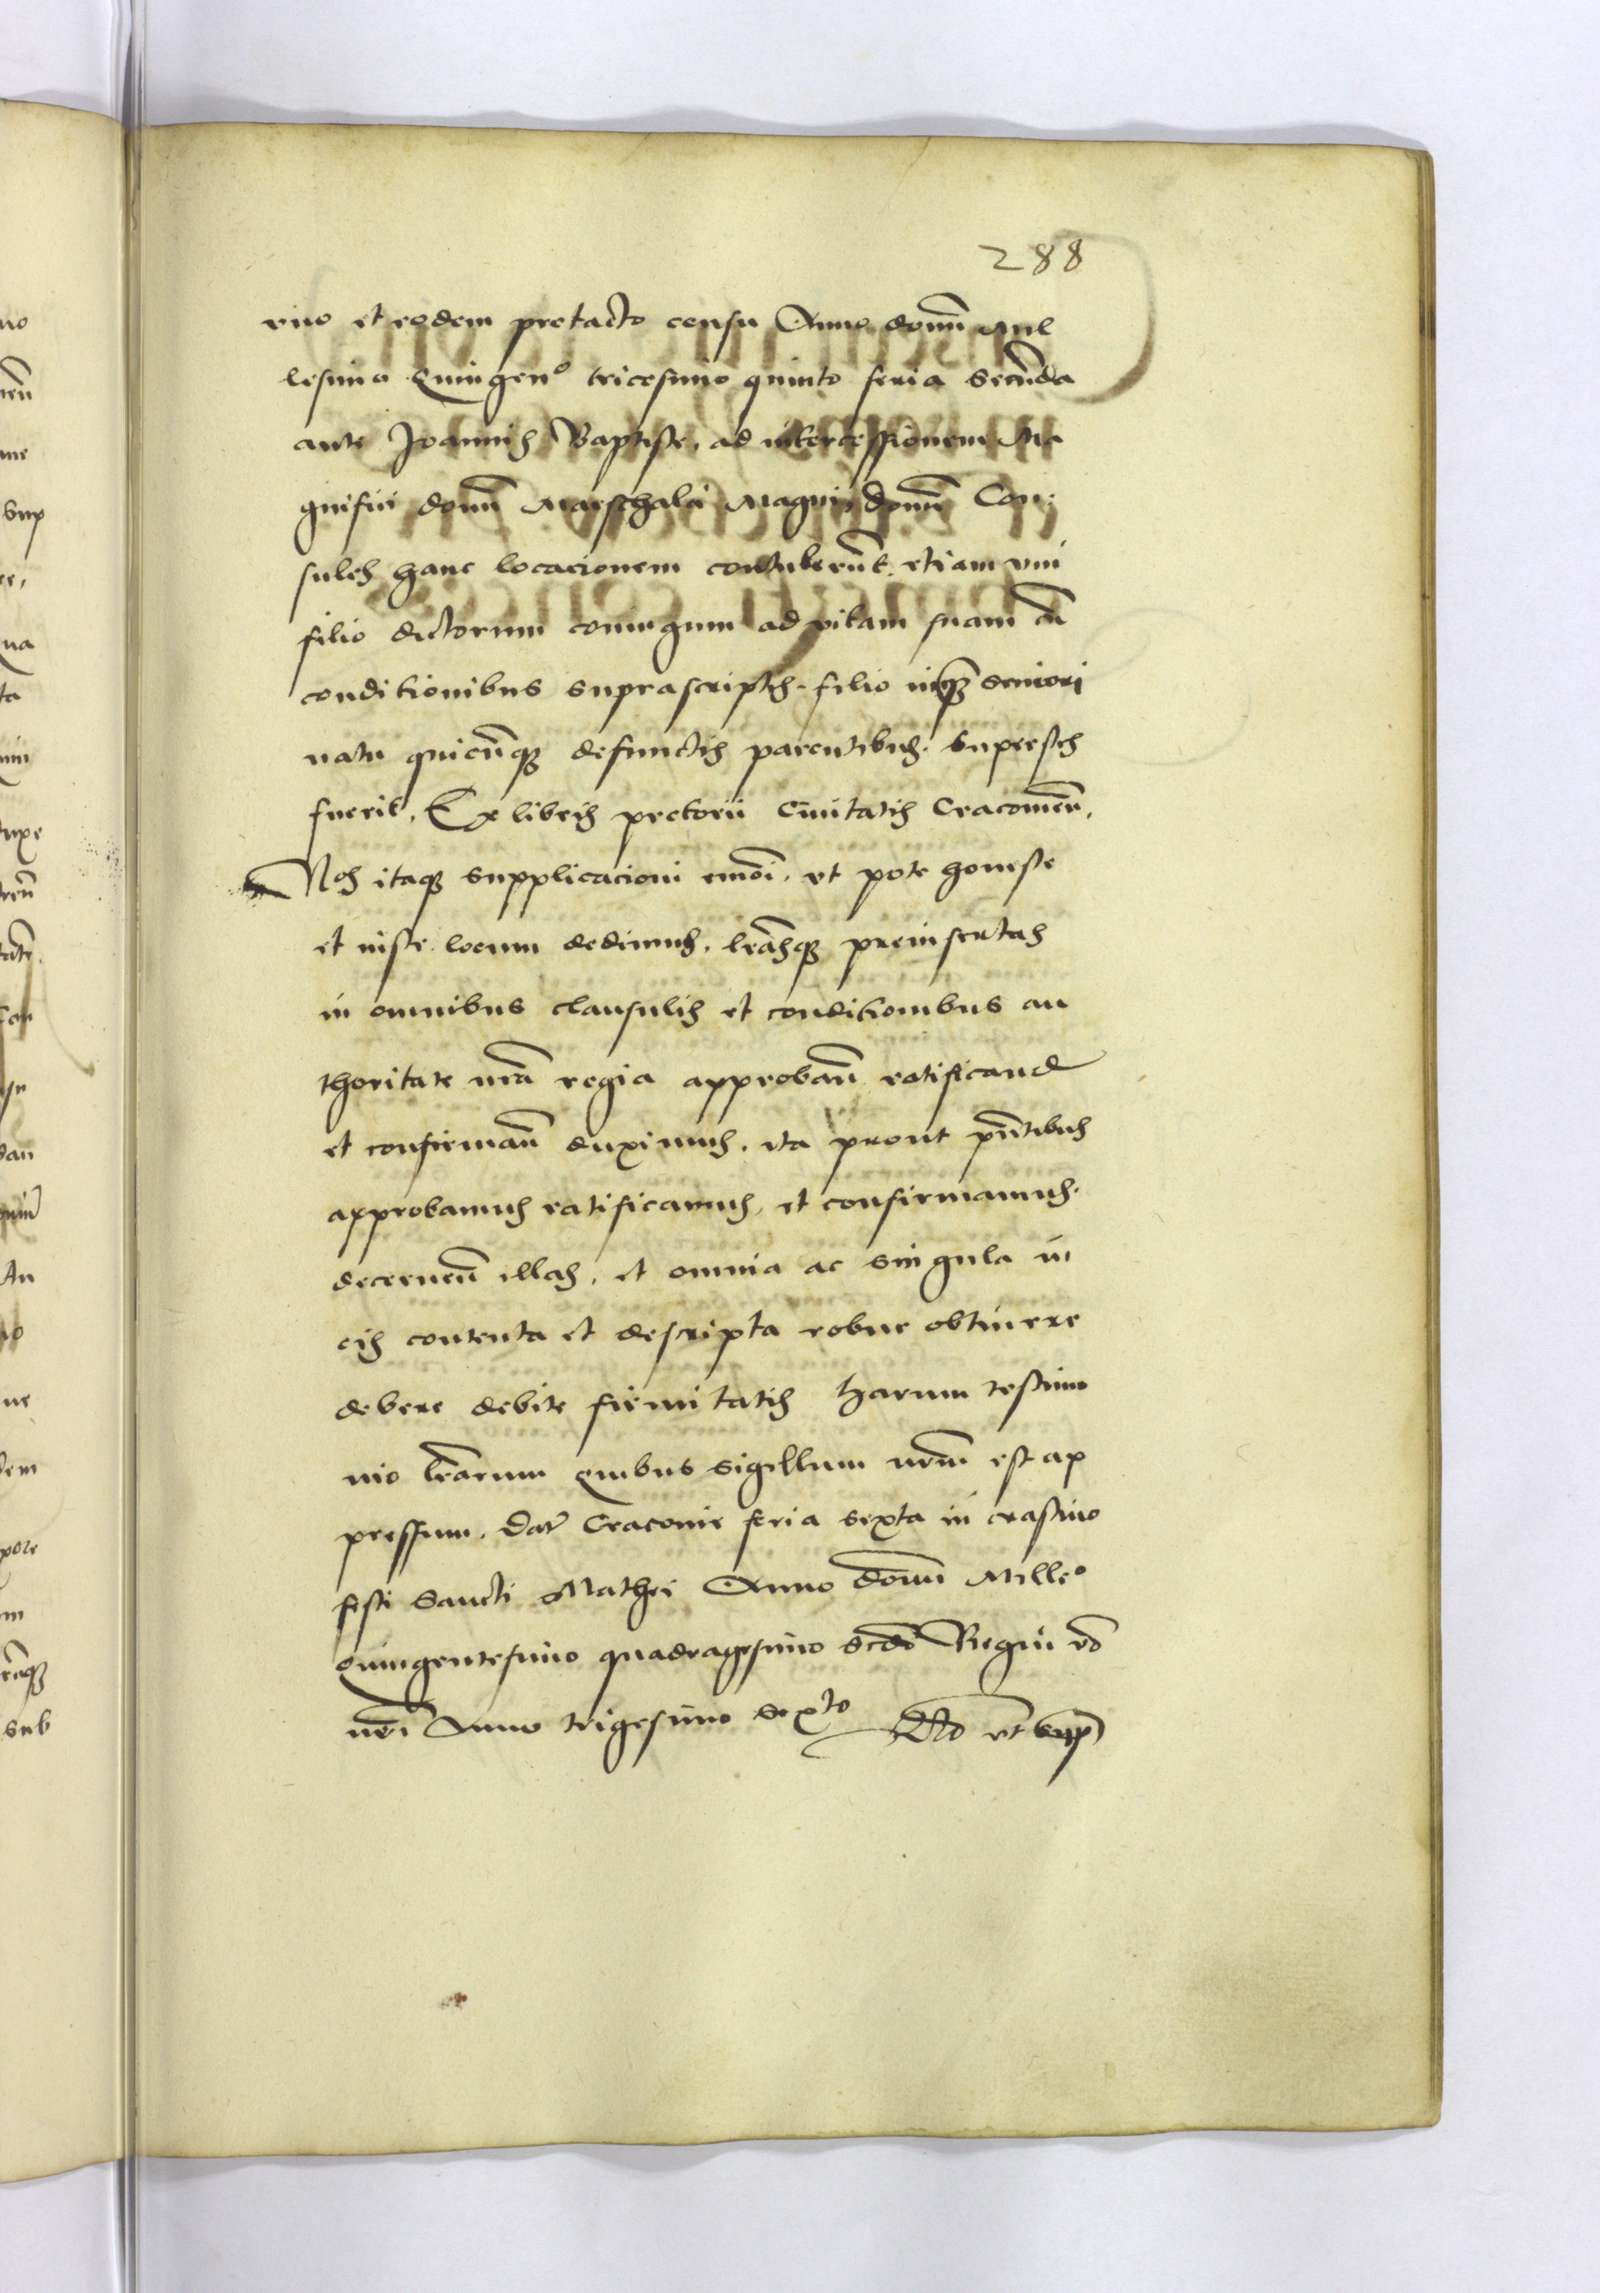 288
vno et eodem pretacto censu Anno domi Mil
lesimo Quingen° tricesimo quinto feria secunda
ante Joannis Baptiste, ad intercessionem Ma
gnifici domi Marschalci Magni domi Con
sules hanc locacionem contulerut etiam vni
filio dictorum coniugum ad vitam suam cu
conditionibus suprascriptis. filio seniori
natu quicuq defunctis parentibus. superstes
fuerit. Ex libris pretorii Ciuitatis Cracouien.
Nos itaq supplicacioni emoi. vt pote honeste
et iuste locum dedimus. lrasq preinsertas
in omnibus clausulis et conditionibus au
thoritate nra regia approban ratificand
et confirman duximus. ita prout pntibus
approbamus ratificamus, et confirmamus.
decernen illas, et omnia ac singula in
eis contenta et descripta robur obtinere
debere debite firmitatis harum testimo
nio lrarum quibus sigillum nrm est ap
pressum. Dat Cracouie feria sexta in crastino
festi Sancti Mathei Anno domi Mille°
quingentesimo quadragesimo scdo Regni vo
nri Anno trigesimo sexto vt sup